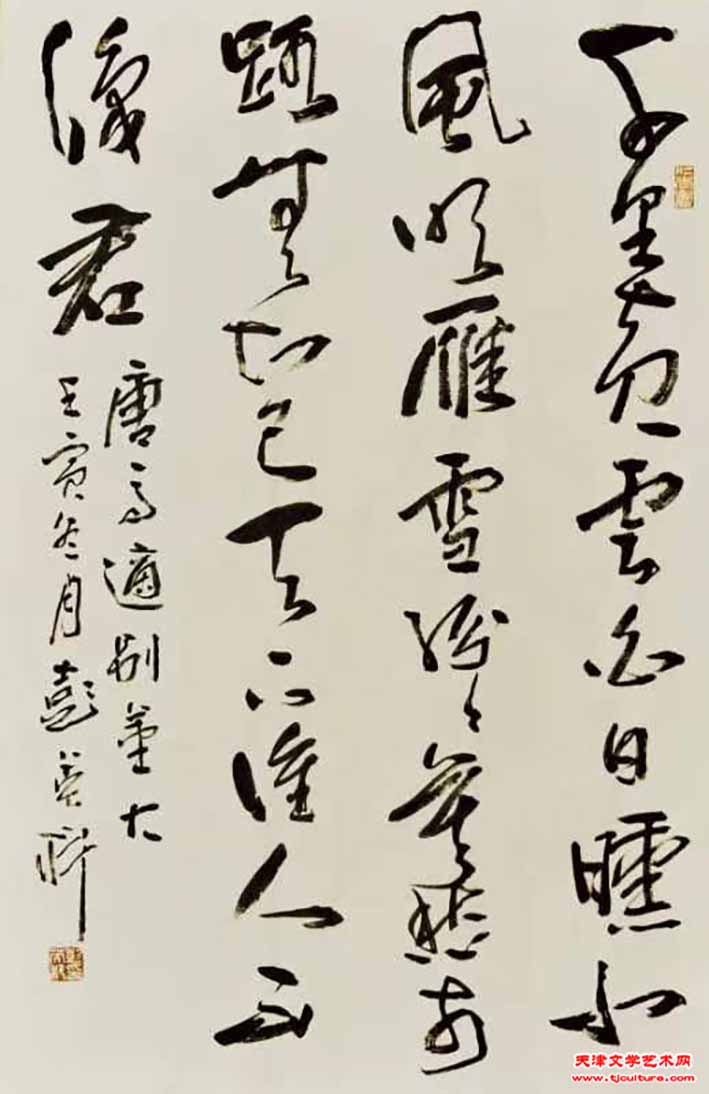 千里黄雲白日曛北
風吹雁雪紛々莫愁前
路無知己天下誰人不
識君
唐高適别董大
壬寅冬月彭英
天津文学艺术网
www.tjculture.com